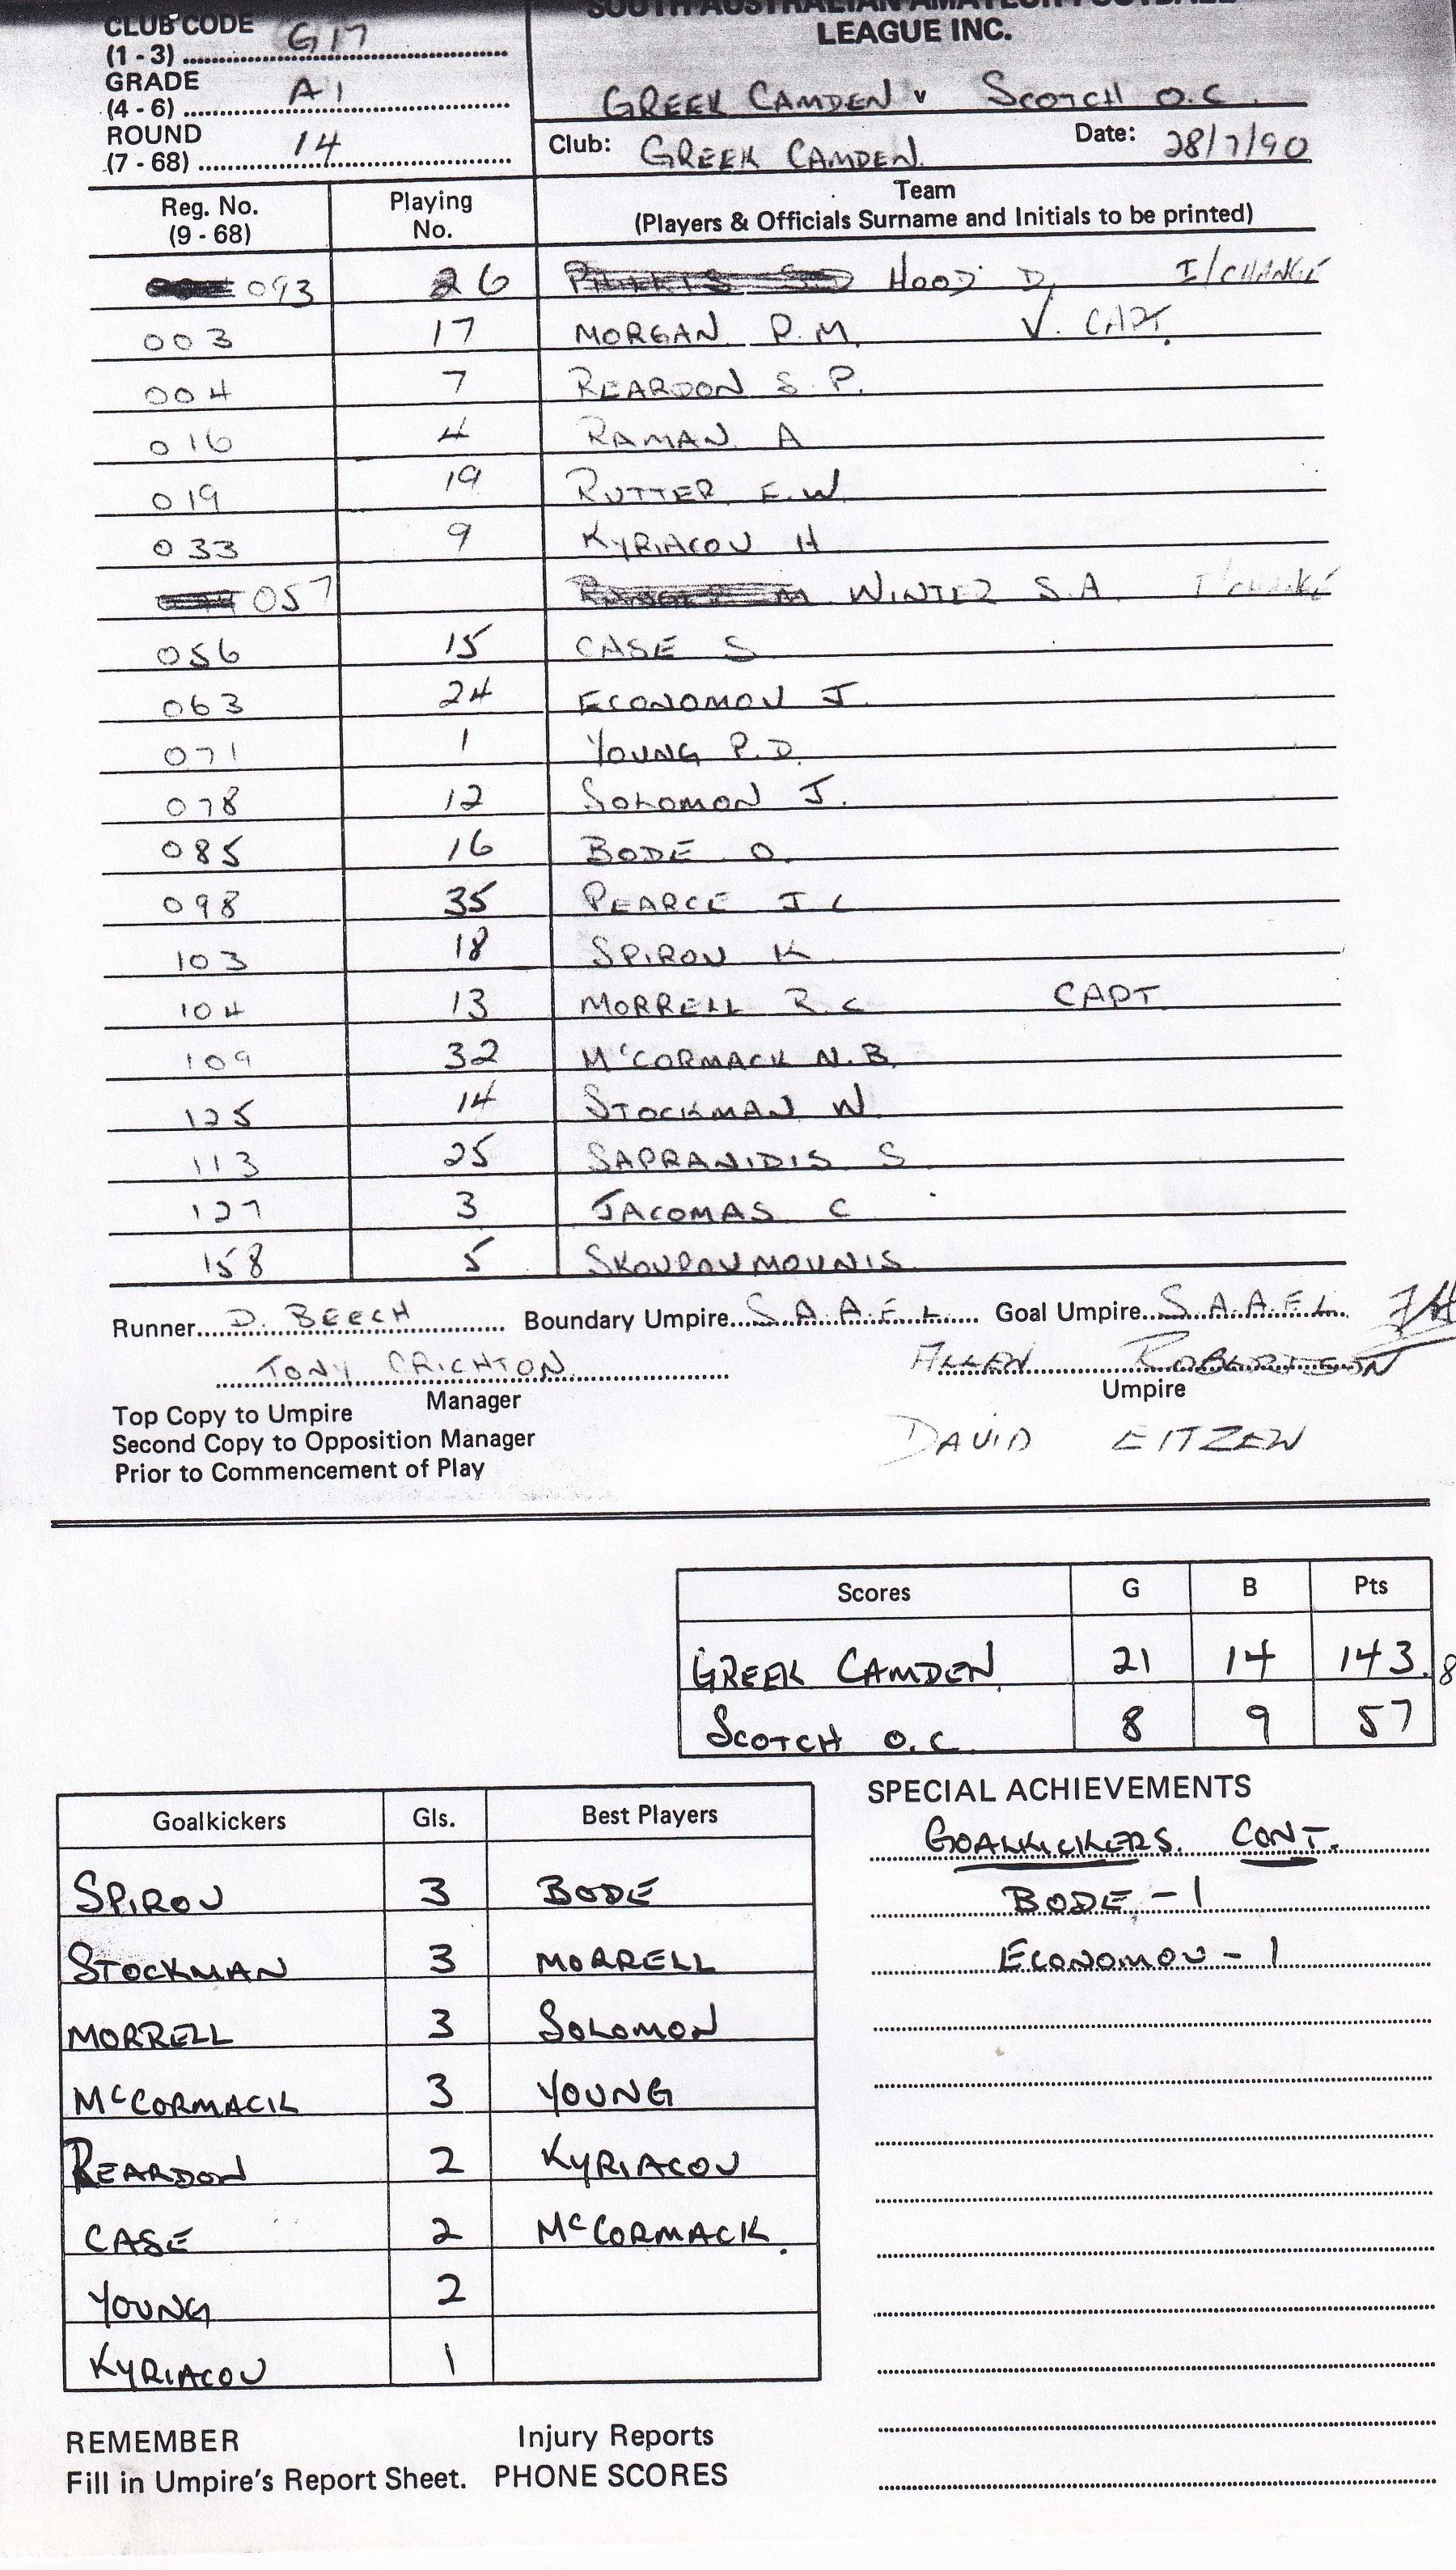 SOUTH AUSTRALIAN AMATEUR FOOTBALL
LEAGUE INC.
CLUB CODE
(1 - 3) G17
GRADE
(4 - 6) A1
ROUND
(7 - 68) 14
GREEK CAMDEN v SCOTCH O.C.
Club: GREEK CAMDEN. Date: 28/7/90
Reg. No. (9 - 68) Playing No. Team (Players & Officials Surname and Initials to be printed)
093 26 HOOD D. I/CHANGE
003 17 MORGAN P.M. V. CAPT.
004 7 REARDON S.P.
016 4 RAMAN A
019 19 RUTTER E.W.
033 9 KYRIACOU H
057 WINTER S.A. I/CHANGE
056 15 CASE S
063 24 ECONOMOU J.
071 1 YOUNG P.D.
078 12 SOLOMON J.
085 16 BODE O.
098 35 PEARCE J C
103 18 SPIROU K
104 13 MORRELL R.C CAPT
109 32 McCORMACK N.B.
125 14 STOCKMAN W.
113 25 SAPRANIDIS S
127 3 JACOMAS C
158 5 SKOUROUMOUNIS
Runner D. BEECH Boundary Umpire S.A.A.F.L Goal Umpire S.A.A.F.L
TONY CRICHTON ALLEN ROBERTSON
Manager Umpire
DAVID EITZEN
Top Copy to Umpire
Second Copy to Opposition Manager
Prior to Commencement of Play
Scores G B Pts
GREEK CAMDEN 21 14 143. 8
SCOTCH O.C. 8 9 57
Goalkickers Gls. Best Players
SPIROU 3 BODE
STOCKMAN 3 MORRELL
MORRELL 3 SOLOMON
McCORMACK 3 YOUNG
REARDON 2 KYRIACOU
CASE 2 McCORMACK.
YOUNG 2
KYRIACOU 1
SPECIAL ACHIEVEMENTS
GOALKICKERS. CONT.
BODE - 1
ECONOMOU - 1
REMEMBER Injury Reports
Fill in Umpire's Report Sheet. PHONE SCORES